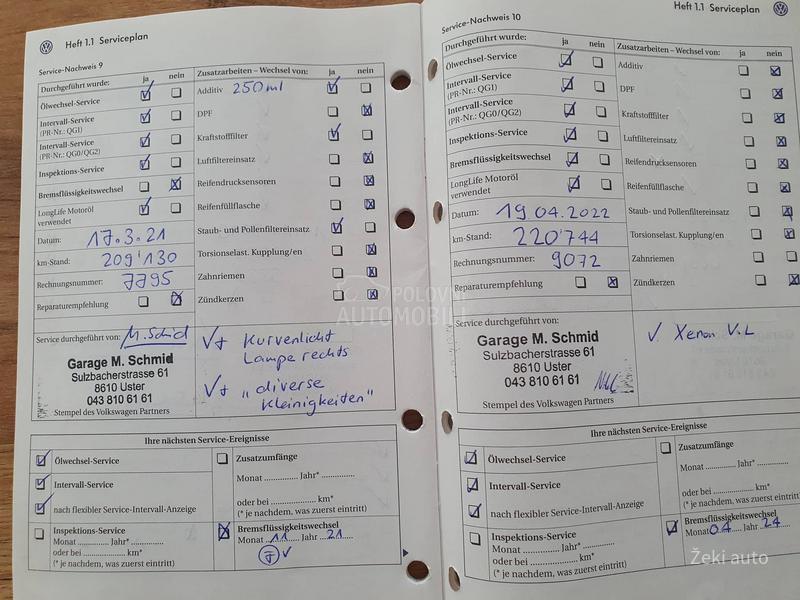 Heft 1.1 Serviceplan
Service-Nachweis 9
Durchgeführt wurde: ja nein
Ölwechsel-Service
Intervall-Service
(PR-Nr.: QG1)
Intervall-Service
(PR-Nr.: QG0/QG2)
Inspektions-Service
Bremsflüssigkeitswechsel
LongLife Motoröl
verwendet
Datum: 17.3.21
km-Stand: 209'130
Rechnungsnummer: 7795
Reparaturempfehlung
Zusatzarbeiten – Wechsel von: ja nein
Additiv 250ml
DPF
Kraftstofffilter
Luftfiltereinsatz
Reifendrucksensoren
Reifenfüllflasche
Staub- und Pollenfiltereinsatz
Torsionselast. Kupplung/en
Zahnriemen
Zündkerzen
Service durchgeführt von: M. Schmid
Garage M. Schmid
Sulzbacherstrasse 61
8610 Uster
043 810 61 61
Stempel des Volkswagen Partners
Kurvenlicht
Lampe rechts
"diverse
Kleinigkeiten"
Ihre nächsten Service-Ereignisse
Ölwechsel-Service
Intervall-Service
nach flexibler Service-Intervall-Anzeige
Inspektions-Service
Monat ............. Jahr* .............
oder bei ............. km*
(* je nachdem, was zuerst eintritt)
Zusatzumfänge
Monat ............. Jahr* .............
oder bei ............. km*
(* je nachdem, was zuerst eintritt)
Bremsflüssigkeitswechsel
Monat 11 Jahr 21
Heft 1.1 Serviceplan
Service-Nachweis 10
Durchgeführt wurde: ja nein
Ölwechsel-Service
Intervall-Service
(PR-Nr.: QG1)
Intervall-Service
(PR-Nr.: QG0/QG2)
Inspektions-Service
Bremsflüssigkeitswechsel
LongLife Motoröl
verwendet
Datum: 19.04.2022
km-Stand: 220'744
Rechnungsnummer: 9072
Reparaturempfehlung
Zusatzarbeiten – Wechsel von: ja nein
Additiv
DPF
Kraftstofffilter
Luftfiltereinsatz
Reifendrucksensoren
Reifenfüllflasche
Staub- und Pollenfiltereinsatz
Torsionselast. Kupplung/en
Zahnriemen
Zündkerzen
Service durchgeführt von:
Garage M. Schmid
Sulzbacherstrasse 61
8610 Uster
043 810 61 61
Stempel des Volkswagen Partners
Xenon V.L
Ihre nächsten Service-Ereignisse
Ölwechsel-Service
Intervall-Service
nach flexibler Service-Intervall-Anzeige
Inspektions-Service
Monat ............. Jahr* .............
oder bei ............. km*
(* je nachdem, was zuerst eintritt)
Zusatzumfänge
Monat ............. Jahr* .............
oder bei ............. km*
(* je nachdem, was zuerst eintritt)
Bremsflüssigkeitswechsel
Monat 04 Jahr 24
POLOVNI
AUTOMOBILI
Žeki auto